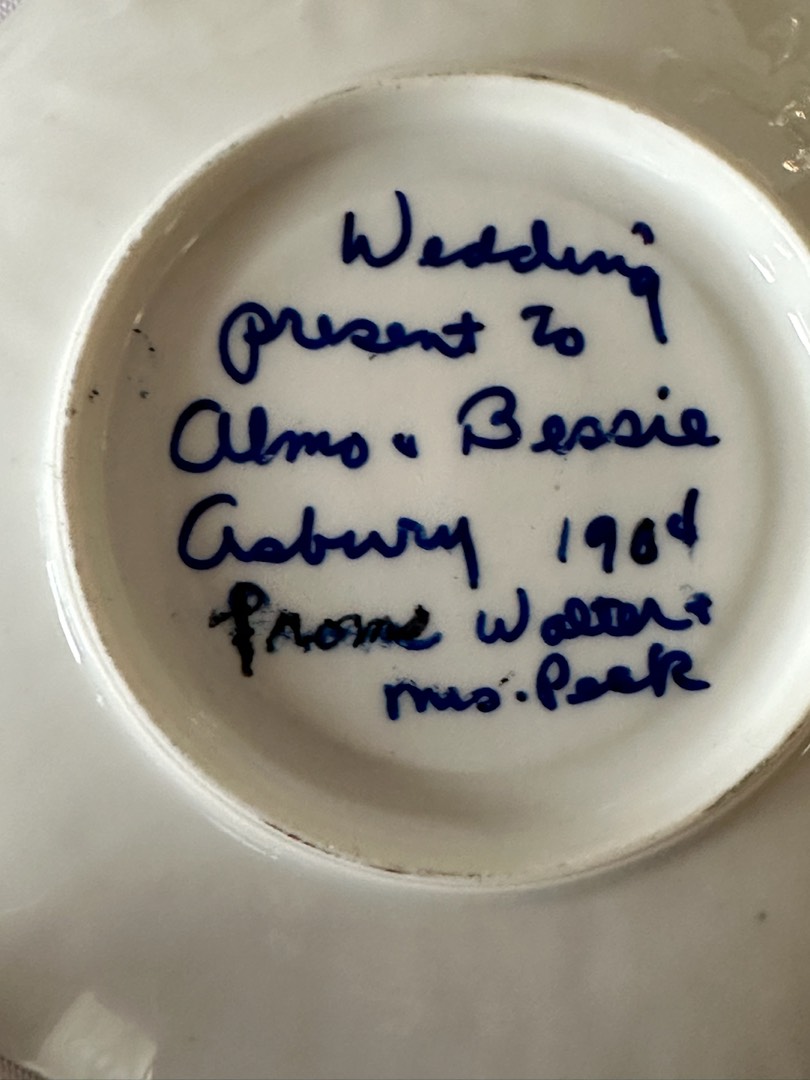 Wedding
present to
Almo & Bessie
Asbury 1904
From Walter &
Mrs. Peek